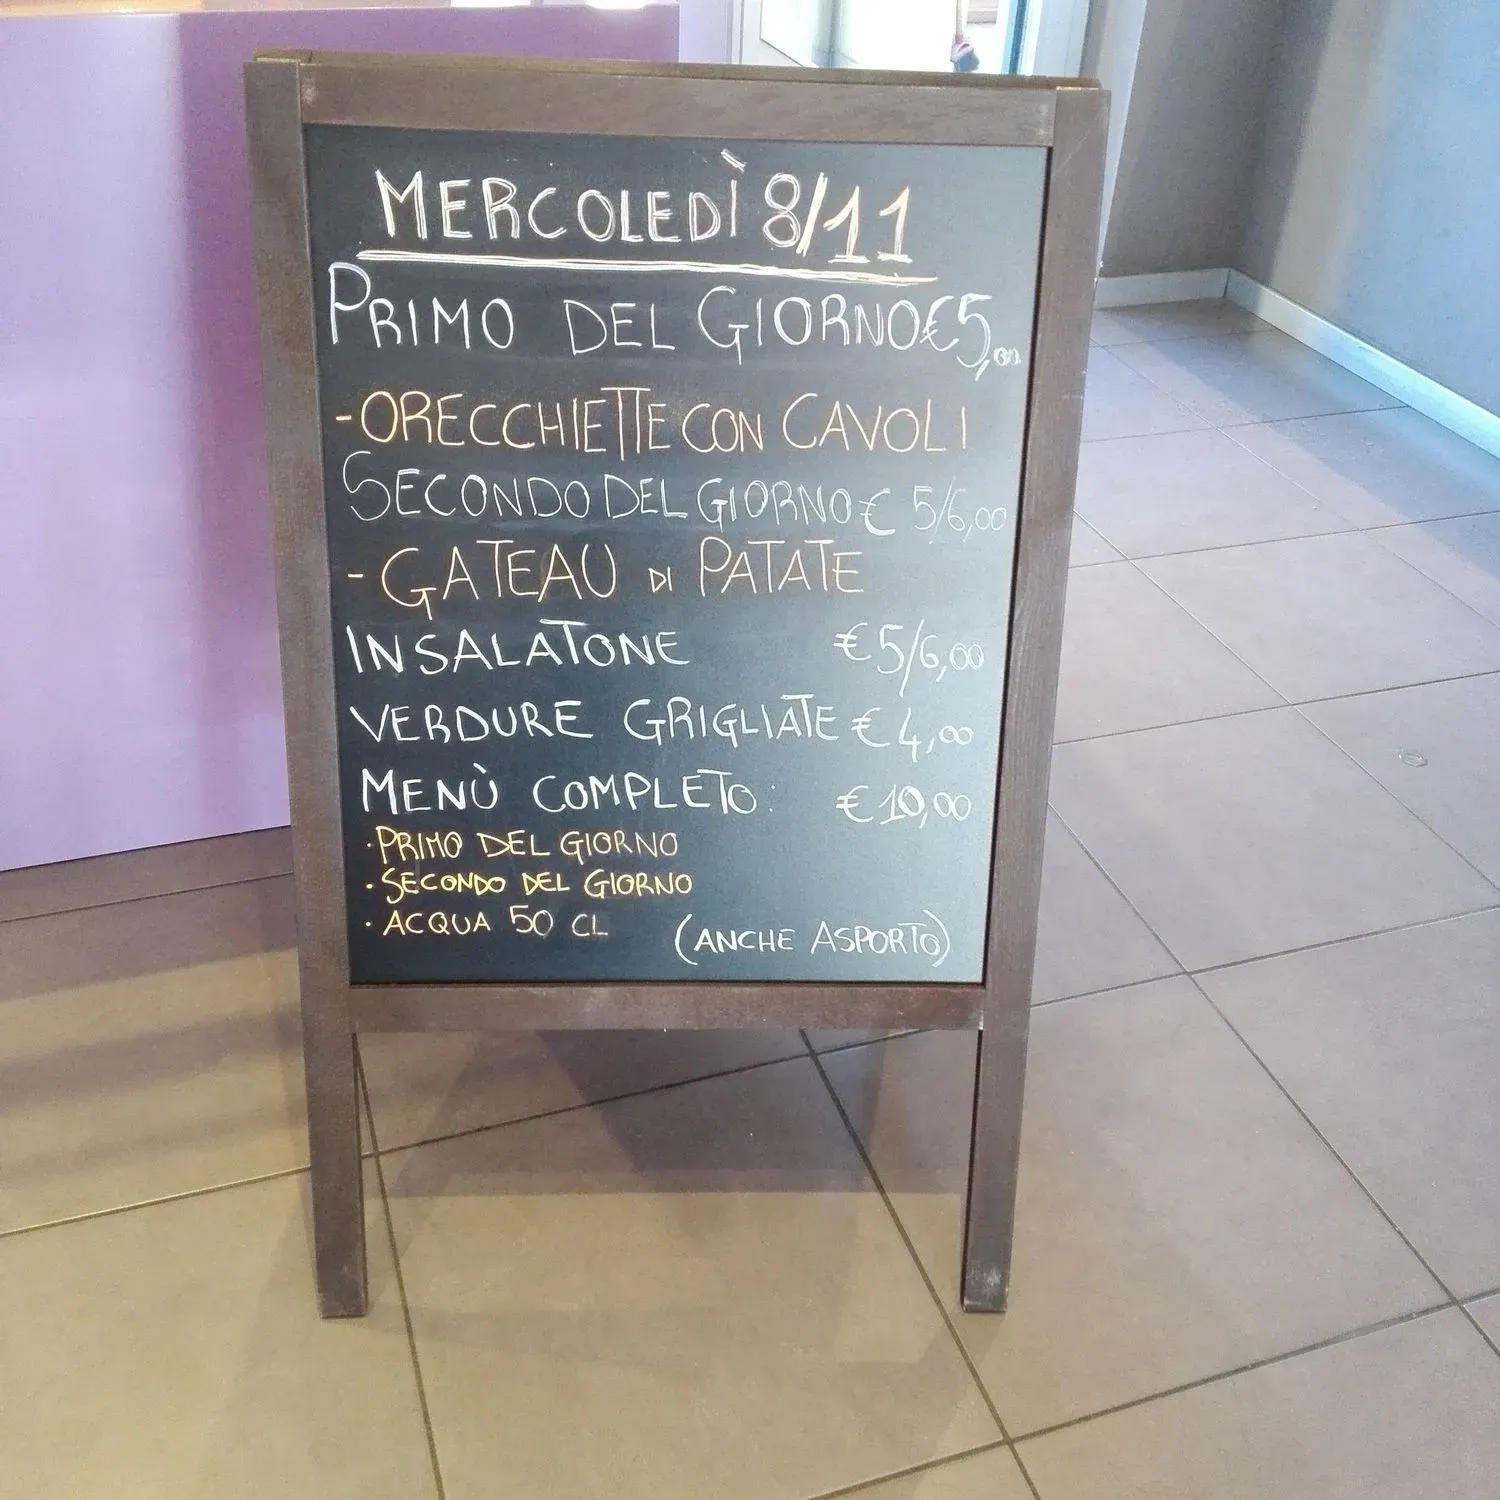 MERCOLEDÌ 8/11
PRIMO DEL GIORNO €5,00
-ORECCHIETTE CON CAVOLI
SECONDO DEL GIORNO € 5/6,00
- GATEAU DI PATATE
INSALATONE €5/6,00
VERDURE GRIGLIATE € 4,00
MENÙ COMPLETO: € 10,00
·PRIMO DEL GIORNO
·SECONDO DEL GIORNO
·ACQUA 50 CL (ANCHE ASPORTO)